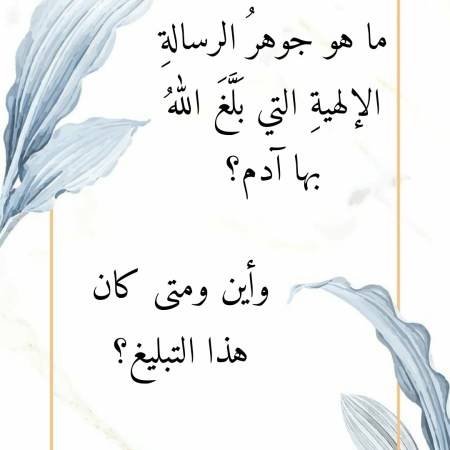 ما هو جوهرُ الرسالةِ
الإلهيةِ التي بَلَّغَ اللهُ
بها آدم؟
وأين ومتى كان
هذا التبليغ؟